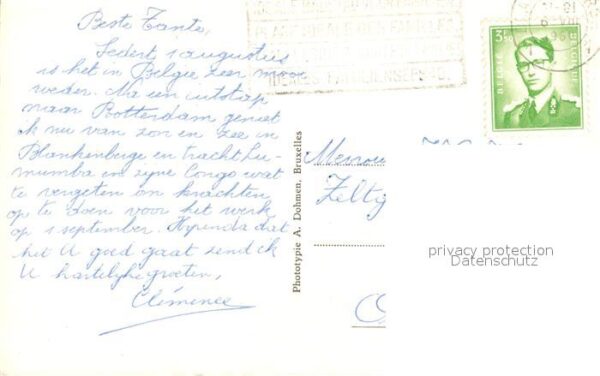 Beste Tante,
Sedert 1 augustus
is het in België zeer mooi
weder. Na een uitstap
naar Rotterdam geniet
ik nu van zon en zee in
Blankenberge en tracht Lu-
mumba en zijne Congo wat
te vergeten en krachten
op te doen voor het werk
op 1 september. Hopende dat
het U goed gaat zend ik
U hartelijke groeten,
Clémence
Phototypie A. Dohmen, Bruxelles
3F50
BELGIE BELGIQUE
Zeltg
privacy protection
Datenschutz